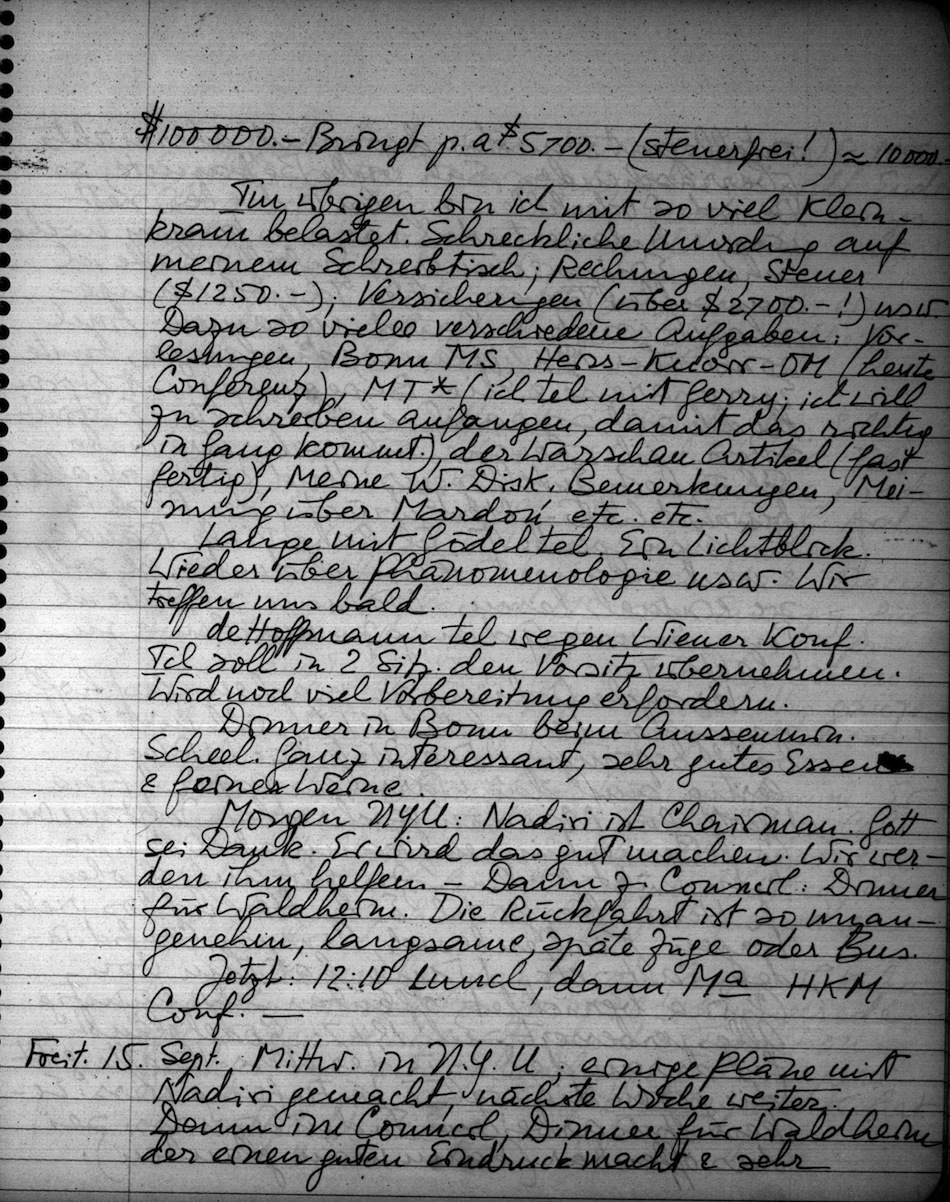 $100000.– Bringt p.a $5700.– (steuerfrei!) ≈ 10000.
Im übrigen bin ich mit so viel Klein-
kram belastet. Schreckliche Unordng auf
meinem Schreibtisch; Rechnungen, Steuer
($1250.–); Versicherungen (über $2700.–!) usw.
Dazu so viele verschiedene Aufgaben: Vor-
lesungen, Bonn MS, Heiss-Knorr-OM (heute
Conferenz), MT* (ich tel mit Gerry; ich will
zu schreiben anfangen, damit das richtig
in Gang kommt.) der Warschau Artikel (fast
fertig), Meine W. Disk. Bemerkungen, Mei-
nung über etc. etc.
Lange mit Gödel tel. Ein Lichtblick.
Wieder über Phänomenologie usw. Wir
treffen uns bald.
de Hoffmann tel wegen Wiener Konf.
Ich soll in 2 Sitz. den Vorsitz übernehmen.
Wird noch viel Vorbereitung erfordern.
Dinner in Bonn beim Aussenmin.
Scheel. Ganz interessant, sehr gutes Essen
& feiner Weine.
Morgen NYU: Nadiri ist Chairman. Gott
sei Dank. Er wird das gut machen. Wir wer-
den ihm helfen – Dann z. Council: Dinner
für Waldheim. Die Rückfahrt ist so unan-
genehm, langsame, späte Züge oder Bus.
Jetzt: 12:10 Lunch, dann Ma HKM
Conf. —
Freit. 15. Sept. Mittw. in N.Y.U, einige Pläne mit
Nadiri gemacht, nächste Woche weiter.
Dann im Council, Dinner für Waldheim
der einen guten Eindruck macht & sehr